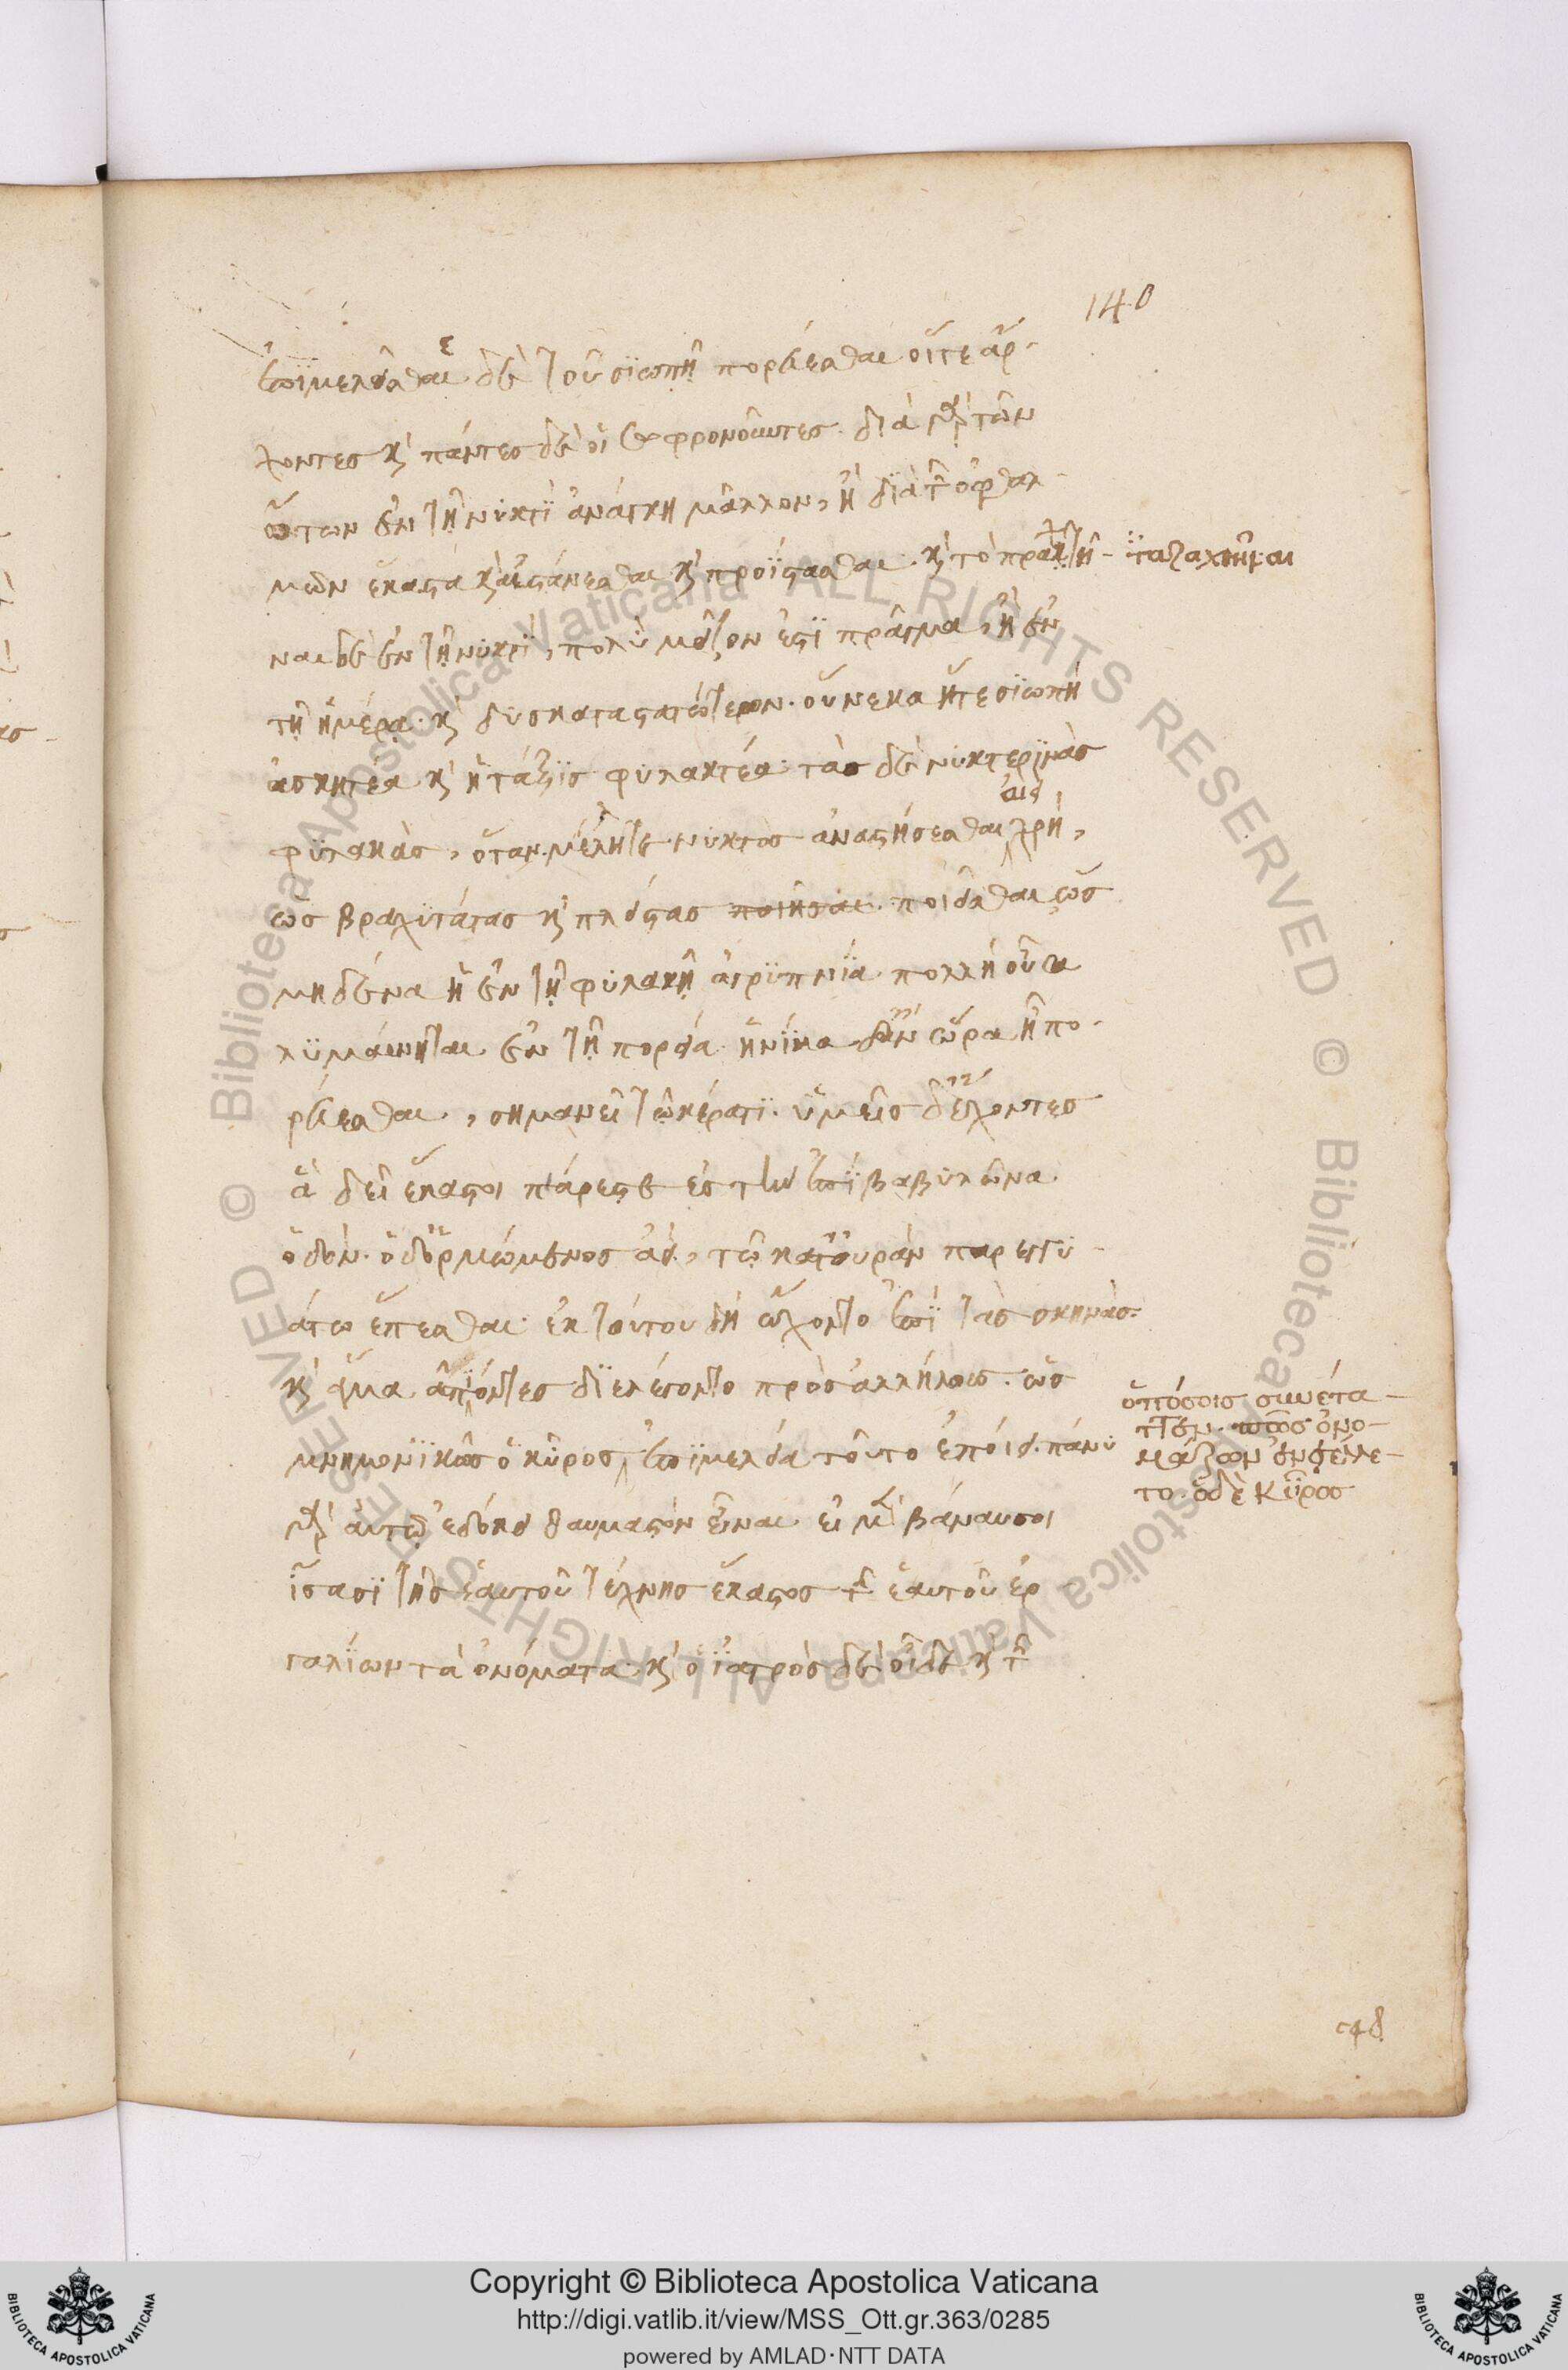 140
ἐπϊμελεῖσθαι. δὲ τοῦ σϊωπῇ πορεύεσθαι οἵτε ἄρ-
χοντες κ πάντες δὲ οἱ σωφρονοῦντες· διὰ γὰρ τῶν
ὤτων ἐν τῇ νυκτῒ ἀνάγκη μᾶλλον, ἢ δϊὰ τῶν ὀφθαλ-
μῶν ἕκαστα κ αἰσθάνεσθαι κ
ναι δὲ ἐν τῇ νυκτῒ, πολὺ μεῖζον ἐστῒ πρᾶγμα, ἢ ἐν
τῇ ἡμέρᾳ· κ δυσκαταστατώτερον. οὕνεκα ἥτε σϊωπὴ
ἀσκητέα κ ἡ τάξϊς φυλακτέα· τὰς δὲ νυκτερϊνὰς
φυλακὰς, ὅταν μέλητε νυκτὸς ἀναστήσεσθαι χρὴ,
ὡς βραχϋτάτας κ πλείστας ποιεῖσθαι, ὡς
μηδένα ἡ ἐν τῇ φυλακῇ ἀγρϋπνΐα πολλὴ οὖσα
λϋμαίνηται ἐν τῇ πορείᾳ· ἡνΐκα ὥρα ᾖ πο-
ρεύεσθαι, σημανεῖ τῷ κέρατϊ· ὑμεῖς δ' ἔχοντες
ἃ δεῖ ἕκαστοι πάρεστε ἐς τὴν ἐπῒ βαβυλῶνα
ὁδόν· ὁ δ' ὁρμώμενος ἀεὶ, τῷ κατ' οὐρὰν παρεγγυ-
άτω ἕπεσθαι· ἐκ τούτου δὴ ᾤχοντο ἐπῒ τὰς σκηνὰς·
κ ἅμα ἀπϊόντες δϊελέγοντο πρὸς ἀλλήλους· ὡς
μνημονϊκῶς ὁ κῦρος ἐπϊμελείᾳ τοῦτο ἐποίει· πάνυ
γὰρ αὐτῷ ἐδόκει θαυμαστὸν εἶναι εἰ οἱ μὲν βάναυσοι
ἴσασϊ τῆς ἑαυτοῦ τέχνης ἕκαστος τῶν ἑαυτοῦ ἐρ
γαλΐων τὰ ὀνόματα· κ ὁ ἰατρὸς δὲ οἶδε κ τῶν
ὁπόσοις συνέτα-
τΤεν. πῶς ὀνο-
μάζων ἐνετέλλε-
το. ὁ δὲ κῦρος
Copyright © Biblioteca Apostolica Vaticana
http://digi.vatlib.it/view/MSS_Ott.gr.363/0285
powered by AMLAD·NTT DATA